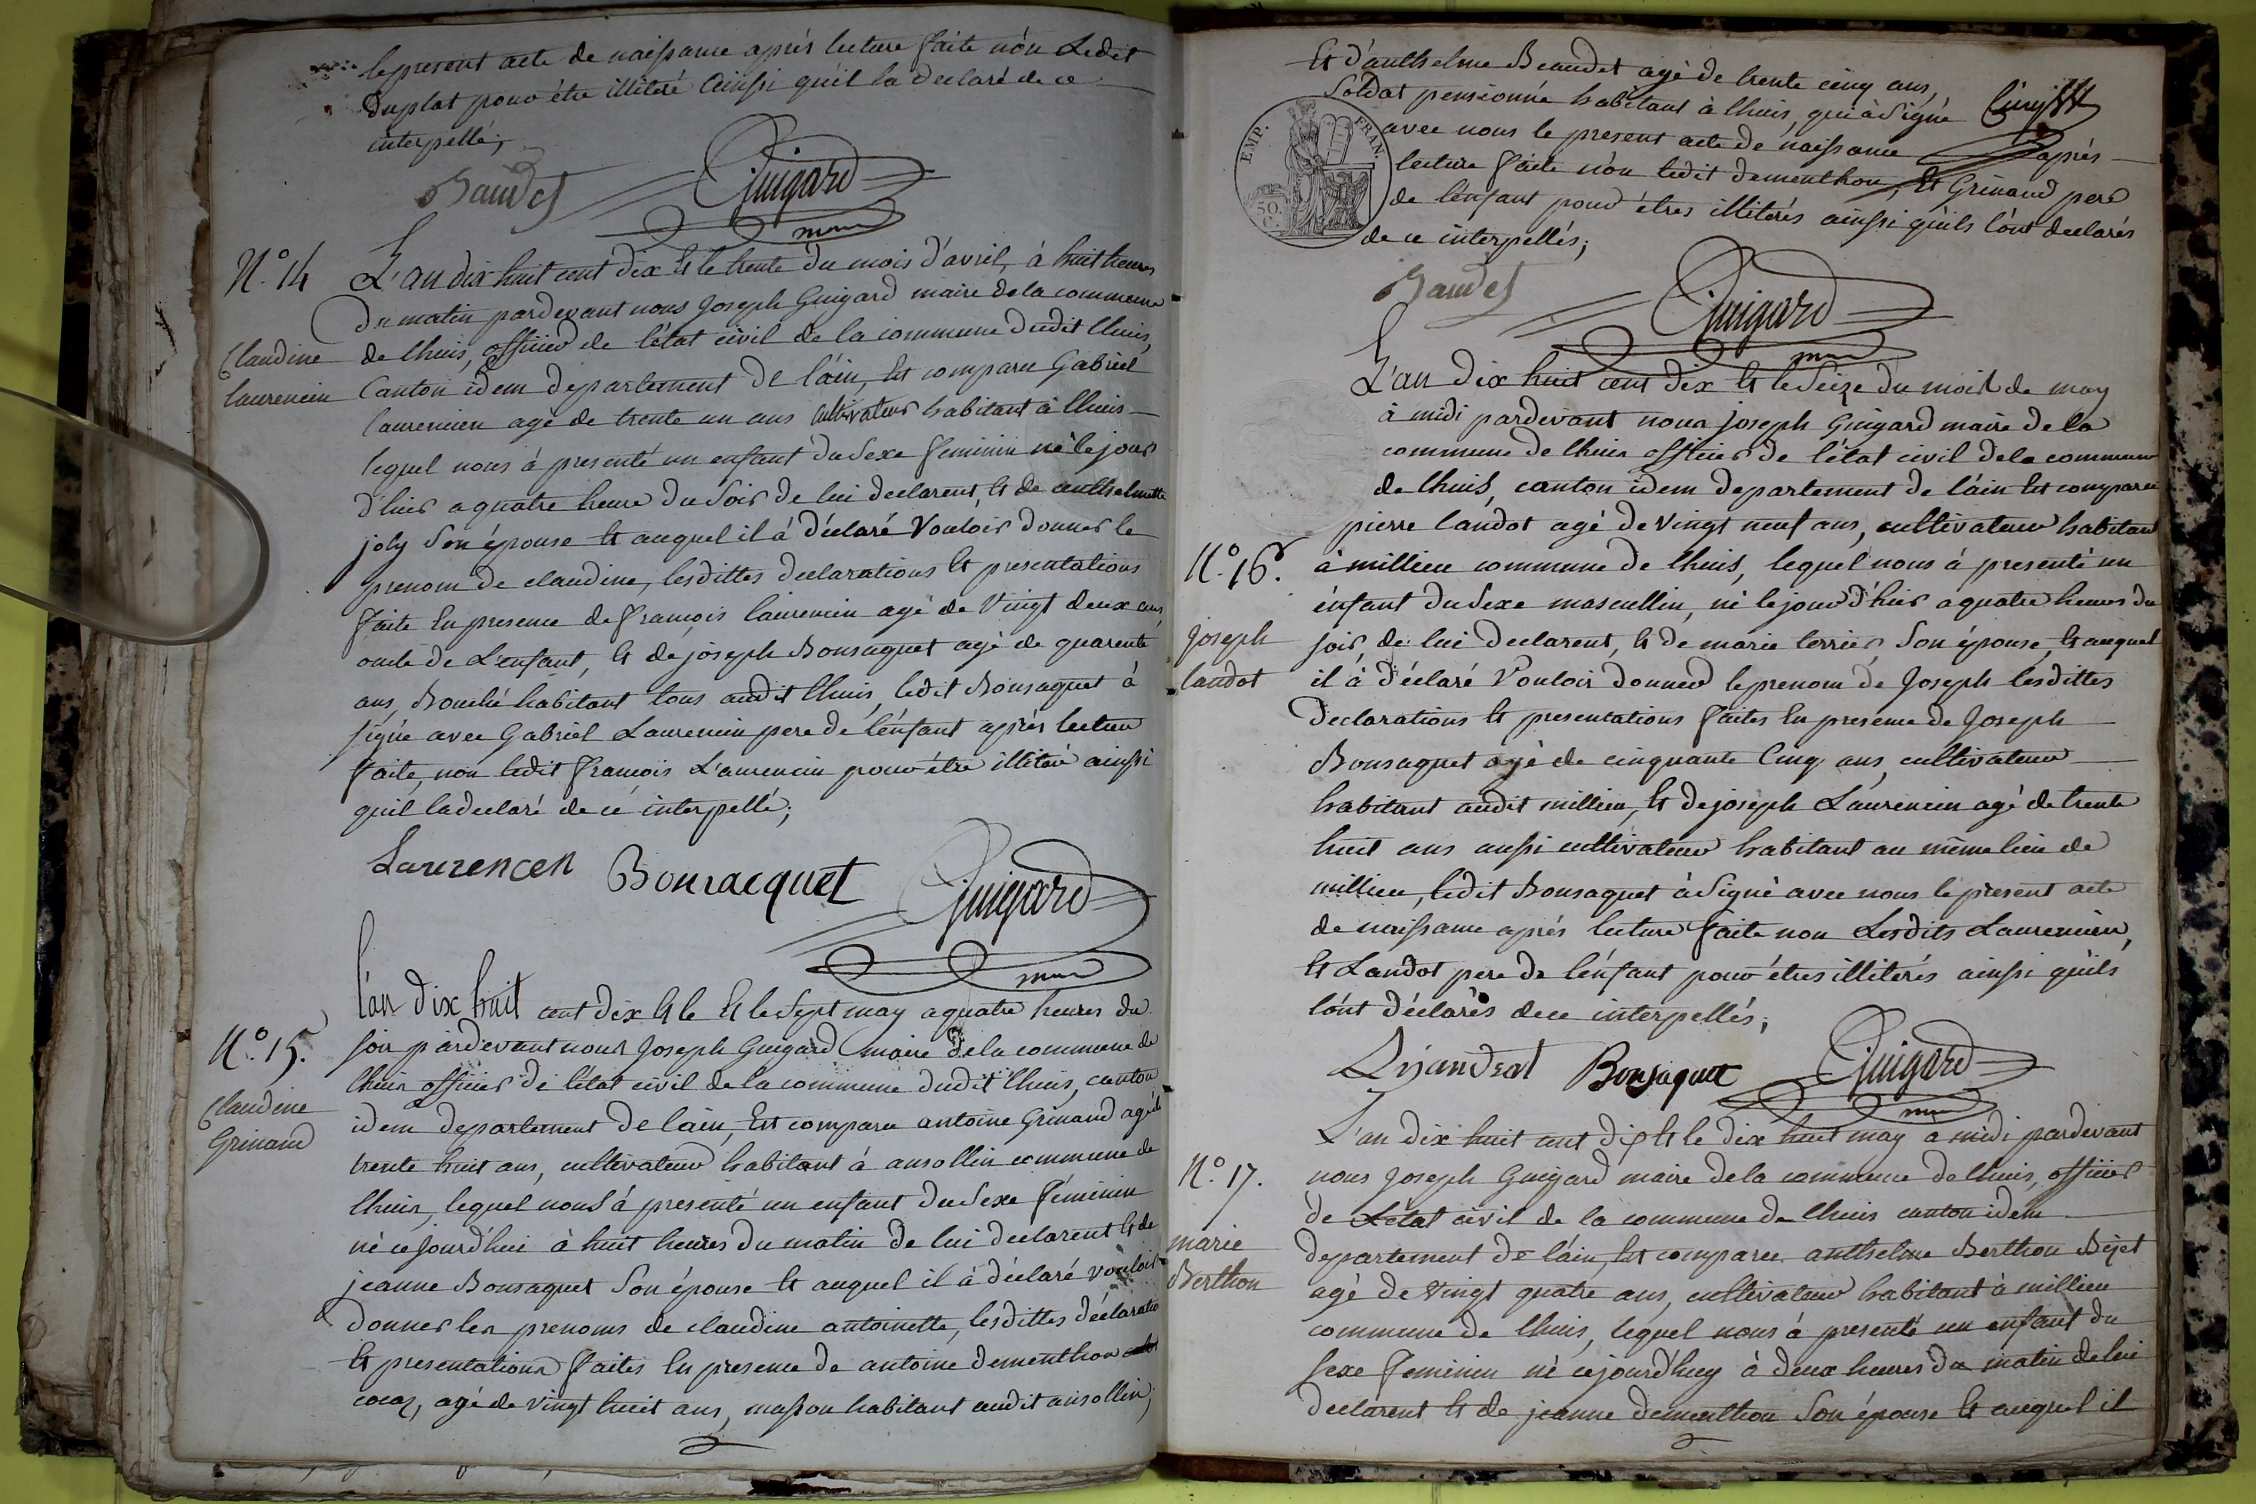 le present acte de naissance aprés lecture faite nón Ledit
Duplat pour étre illiteré Ainssi quil la declaré de ce
interpellé;
Baudet Guigard
maire
N.º 14
Claudine
laurencin
L'an dix huit cent dix Et le trente du mois d'avril, à huit heures
du matin pardevant nous Joseph Guigard maire dela commune
de lhuis, officier de létat civil de la commune dudit lhuis,
Canton idem departement de láin, Est comparu Gabriel
laurencien agé de trente un ans cultivateur habitant à lhuis
lequel nous à presenté un enfant du Sexe feminin né le jour
d'hier a quatre heure du Soir de lui declarent, Et de anthelmette
joly Son épouse Et auquel il á déclaré Vouloir donner le
prenom de claudine, lesdittes declarations Et presentations
faite En presence de françois laurencin agé de Vingt deux ans,
oncle de L'enfant, Et de joseph Bonsaquet agé de quarente
ans, Bouché habitant tous audit lhuis, ledit Bonsaquet à
signé avec Gabriel Laurencin pere de lénfant aprés lecture
faite, non ledit françois L'aurencin pour étre illiteré ainssi
quil ladeclaré de cé interpellé;
Laurencen Bonsacquet Guigard
maire
N.º 15.
Claudine
Grinand
l'an dix huit cent dix Et le Et le Sept may aquatre heures du
soir pardevant nous Joseph Guigard maire dela commune de
lhuis officier de létat civil de la commune dudit lhuis, canton
idem departement de lain, Est comparu antoine Grinand agé de
trente huit ans, cultivateur habitant à ansollin commune de
lhuis, lequel nous á presenté un enfant du Sexe féminin
né cejourd'hui à huit heures du matin de lui declarent Et de
jeanne Bonsaquet Son épouse Et auquel il à déclaré vouloir
donner les prenoms de claudine antoinette, lesdittes déclaratio
Et presentations faites En presence de antoine dementhon
cocaz, agé de vingt huit ans, masson habitant audit ansollin,
Et d'anthelme Beaudet agé de trente cinq ans,
Soldat pensionné habitant à lhuis, qui à Signé
avec nous le present acte de naissance aprés
lecture faite nón ledit dementhon, Et Grinand pere
de lénfant pour étres illiterés ainssi quils lónt declarés
de ce interpellés;
EMP. FRAN.
50.
C.
Baudet Guigard
maire
N.º 16.
Joseph
landot
L'an dix huit cent dix Et le Seize du mois de may
à midi pardevant nous joseph Guigard maire de la
commune de lhuis officier de létat civil dela commune
de lhuis, canton idem departement de láin Est comparu
pierre landot agé de Vingt neuf ans, cultivateur habitan
à millieu commune de lhuis, lequel nous á presenté un
énfant du Sexe mascullin, né le jour d'hier a quatre heures du
soir, de lui declarent, Et de marie terrier Son épouse, Et auquel
il à déclaré Vouloir donner le prenom de Joseph lesdittes
declarations Et presentations faites En presence de Joseph
Bonsaquet agé de cinquante Cinq ans, cultivateur
habitant audit millieu, Et de joseph L'aurencin agé de trente
huit ans aussi cultivateur habitant au même lieu de
millieu, ledit Bonsaquet à Signé avec nous le present acte
de naissance aprés lecture faite non Lesdits Laurencin,
Et Landot pere de lénfant pour étres illiterés ainssi quils
lónt déclarés dece interpellés;
Bonsaquet Guigard
maire
N.º 17.
marie
Berthon
L'an dix huit cent dix Et le dix huit may a midi pardevant
nous Joseph Guigard maire dela commune de lhuis, officier
de Létat civil de la commune de lhuis canton idem
departement de láin, Est comparu anthelme Berthon Bizet
agé de Vingt quatre ans, cultivateur habitant à millieu
commune de lhuis, lequel nous á presenté un enfant du
sexe feminin né cejourd'huy à deux heures du matin de lui
declarent Et de jeanne dementhon Son épouse Et auquel il